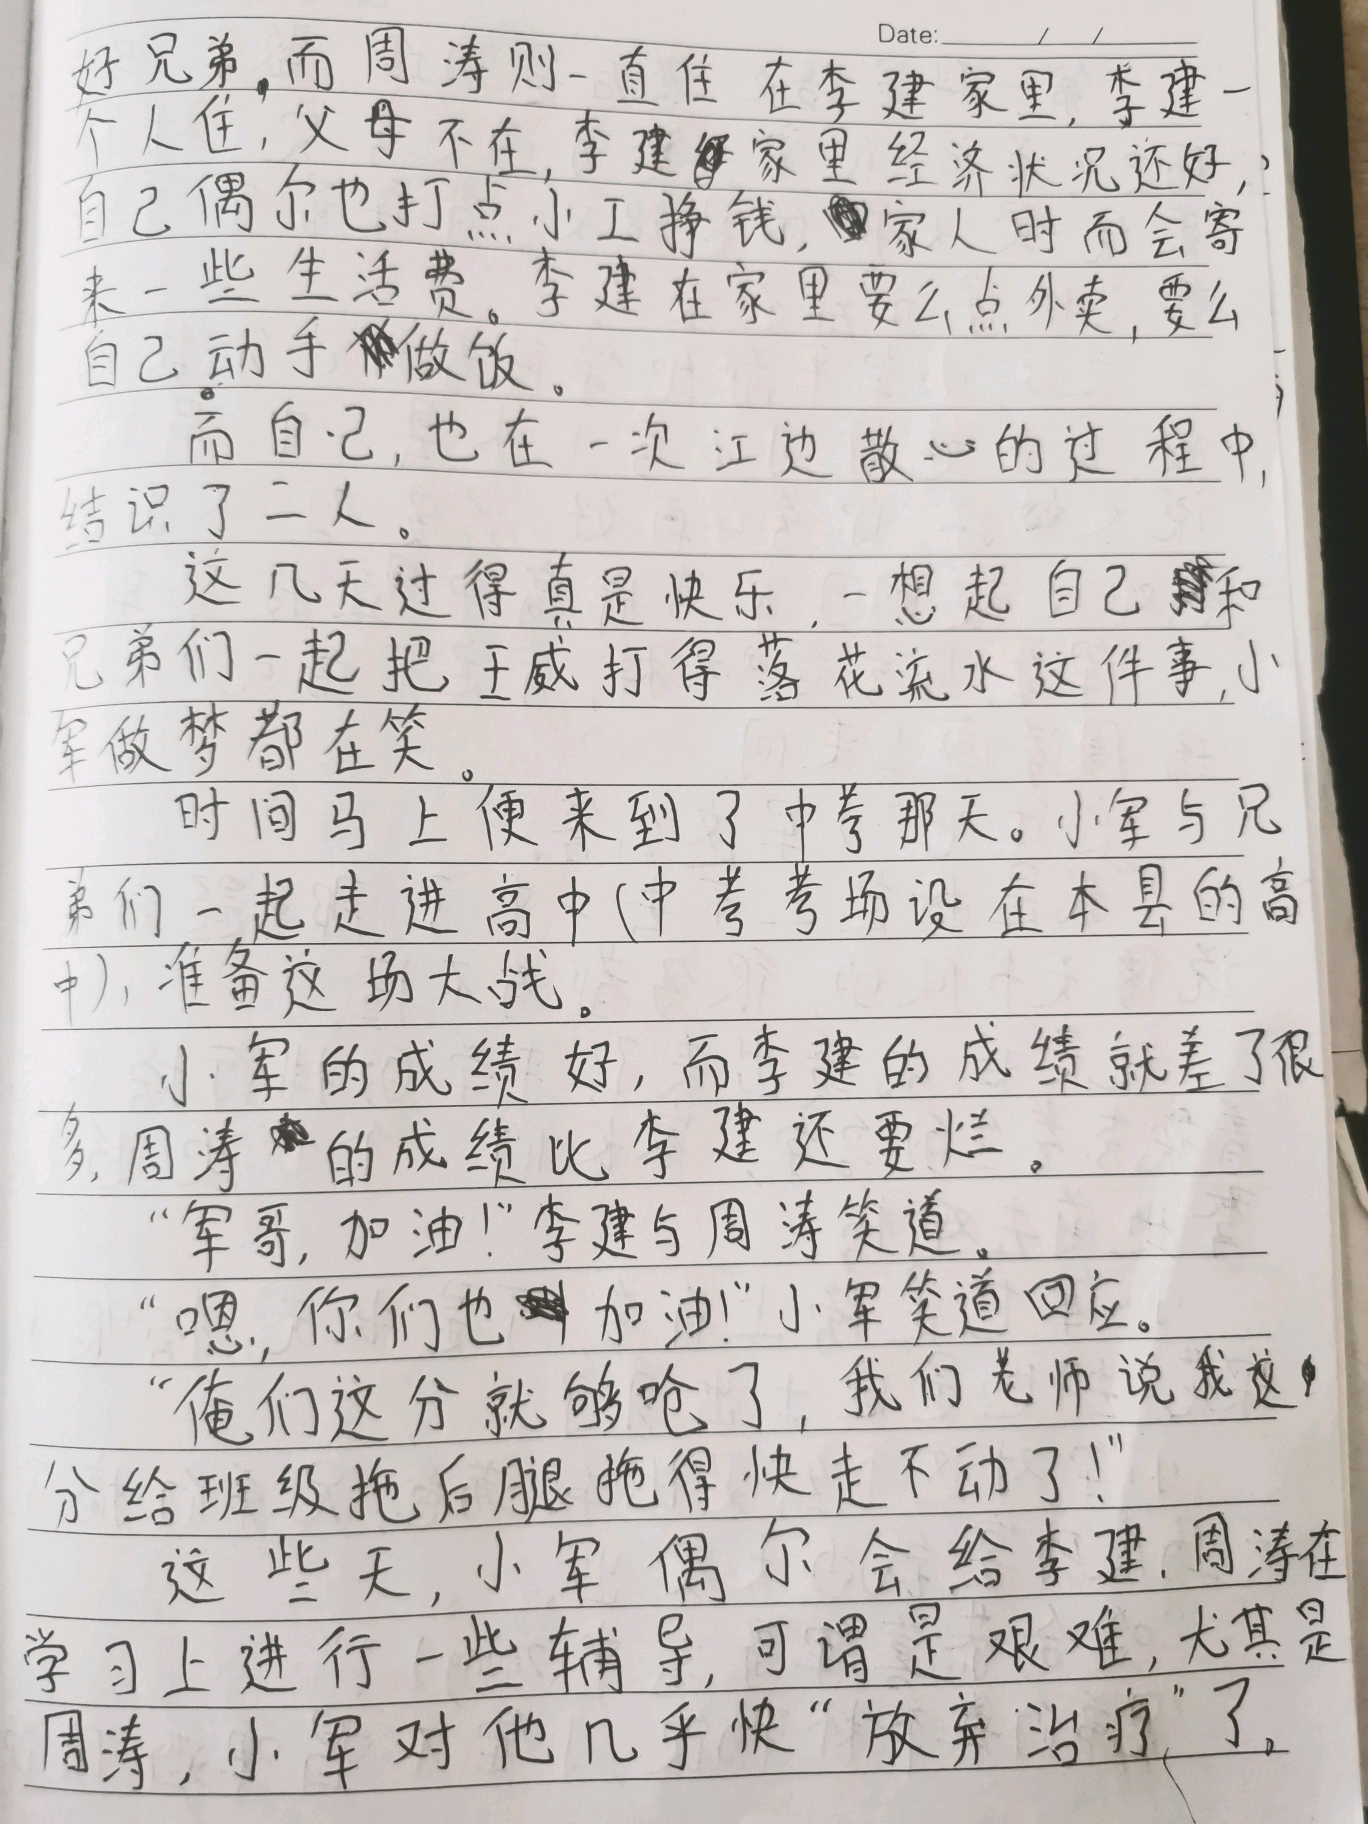 Date: / /
好兄弟。而周涛则一直住在李建家里,李建一
个人住,父母不在,李建家里经济状况还好,
自己偶尔也打点小工挣钱,家人时而会寄
来一些生活费。李建在家里要么点外卖,要么
自己动手做饭。
而自己,也在一次江边散心的过程中,
结识了二人。
这几天过得真是快乐,一想起自己和
兄弟们一起把王威打得落花流水这件事,小
军做梦都在笑。
时间马上便来到了中考那天。小军与兄
弟们一起走进高中(中考考场设在本县的高
中),准备这场大战。
小军的成绩好,而李建的成绩就差了很
多,周涛的成绩比李建还要烂。
“军哥,加油!”李建与周涛笑道。
“嗯,你们也加油!”小军笑道回应。
“俺们这分就够呛了,我们老师说我这
分给班级拖后腿拖得快走不动了!”
这些天,小军偶尔会给李建、周涛在
学习上进行一些辅导,可谓是艰难,尤其是
周涛,小军对他几乎快“放弃治疗”了。